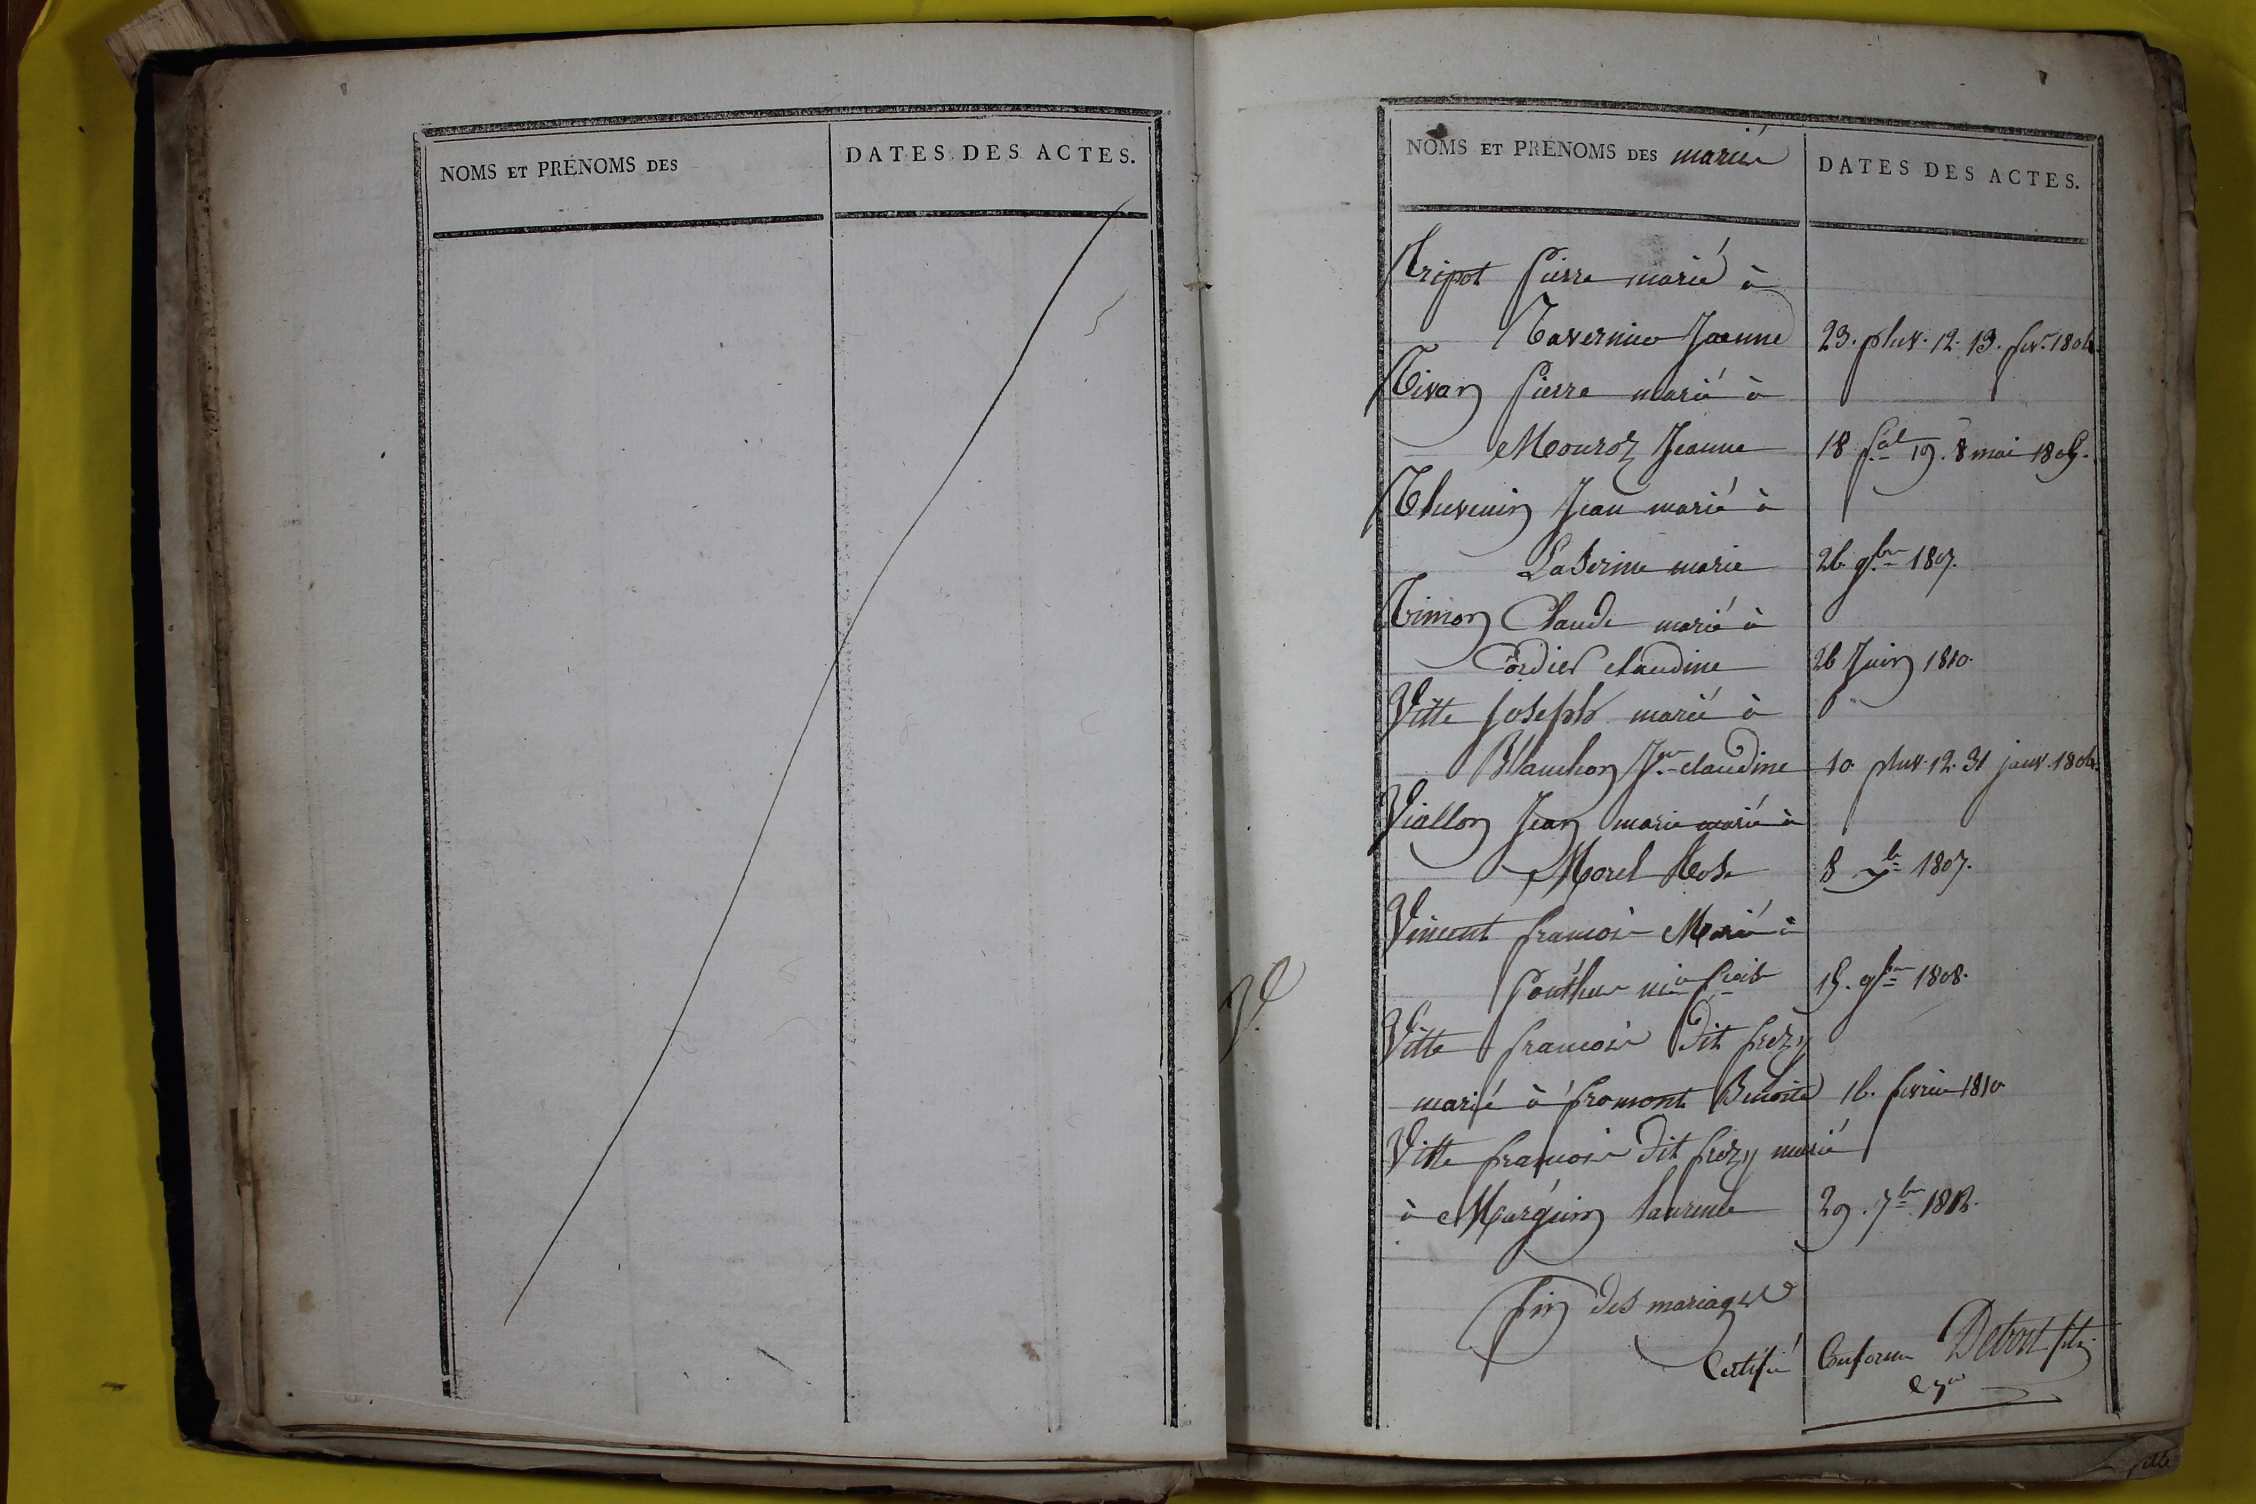 NOMS ET PRÉNOMS DES
DATES DES ACTES.
NOMS ET PRÉNOMS DES mariés
DATES DES ACTES.
Tripot pierre marié à
Tavernier Jeanne 23. pluv. 12. 13. fer. 1804.
Tivan pierre marié à
Mouroz Jeanne 18 fal 13. 8 mai 1805.
Thevenin Jean marié à
Laserine marie 26. 9bre 1807.
Trimon Claude marié à
Cordier claudine 26 Juin 1810.
Vitte Joseph marié à
Blanchon Jne claudine 10 pluv. 12. 31 janv. 1804.
Viallon Jean marie marié à
Morel Rose 8 1807.
Vincent francois Marié à
15. 9bre 1808.
Vitte francois dit frezy
marié à fromont Benoite 16. fevrier 1810
Vitte francois dit frezy marié
à Marguin laurence 29. 7bre 1812.
fin des mariages
Certifié Conforme